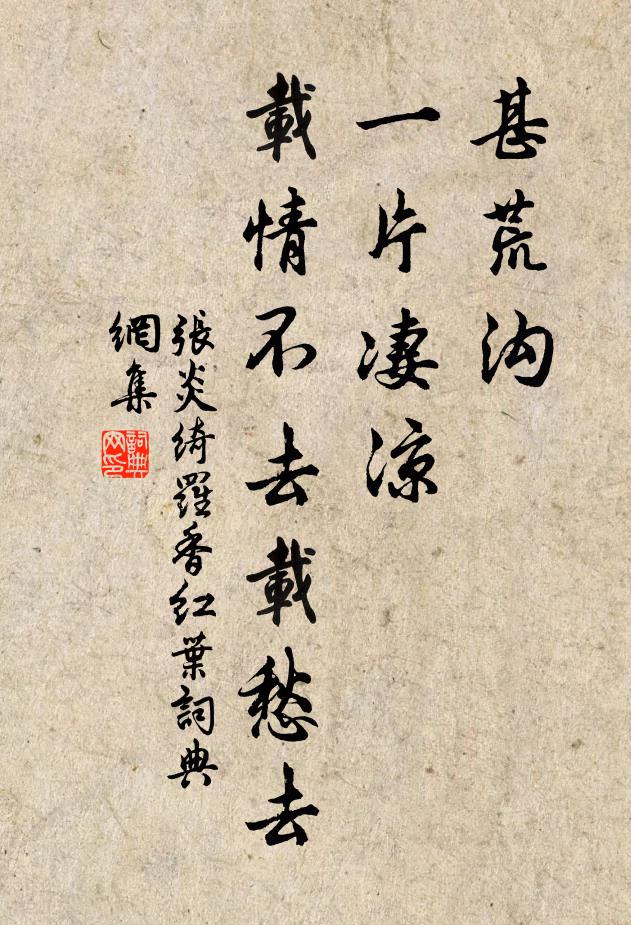 甚荒沟
一片凄涼
載情不去載愁去
張炎綺羅香紅葉詞典
網集
詞典
网印